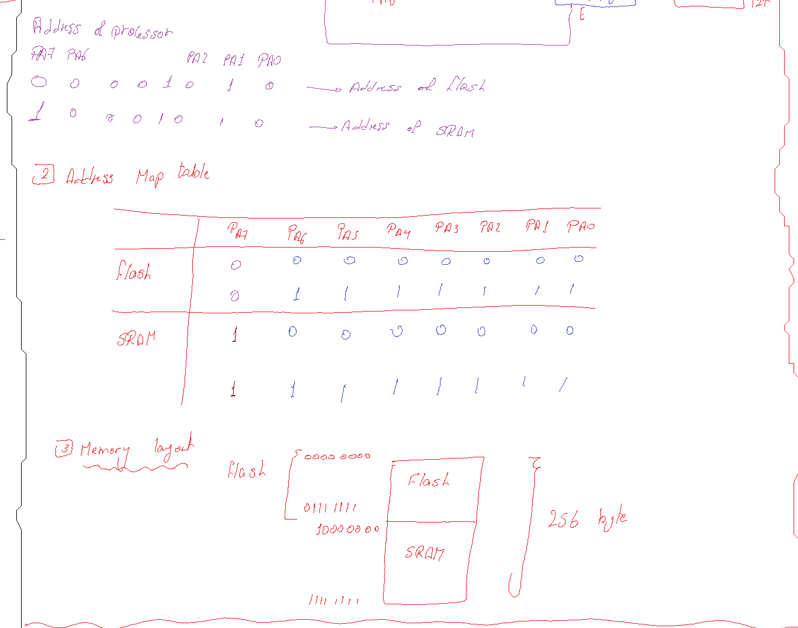 E
Address of processor
PA7 PA6 PA2 PA1 PA0
0 0 0 0 1 0 1 0 → Address of Flash
1 0 0 0 1 0 1 0 → Address of SRAM
2 Address Map table
PA7 PA6 PA5 PA4 PA3 PA2 PA1 PA0
Flash 0 0 0 0 0 0 0 0
0 1 1 1 1 1 1 1
SRAM 1 0 0 0 0 0 0 0
1 1 1 1 1 1 1 1
3 Memory layout
Flash
00000000
Flash
01111111
10000000
256 byte
SRAM
1111 1111